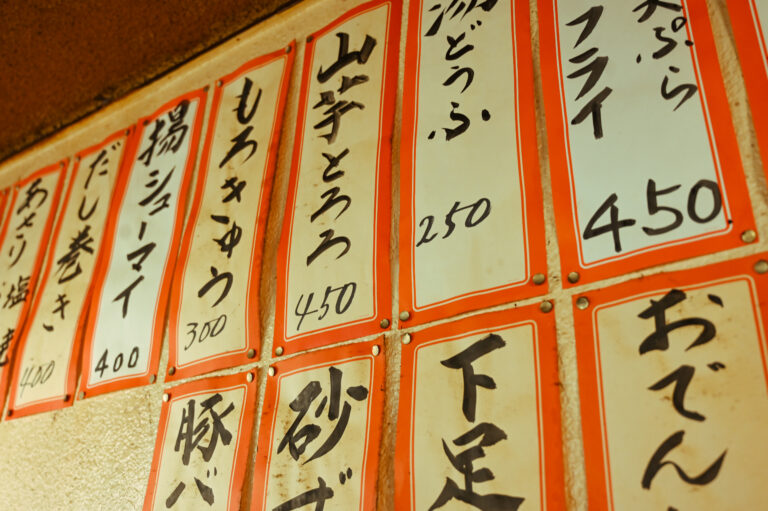 ぷら
フライ
450
湯どうふ
250
山芋とろろ
450
もろきゅう
300
揚シューマイ
400
だし巻き
400
あさり塩焼
おでん
下足
砂ず
豚バ